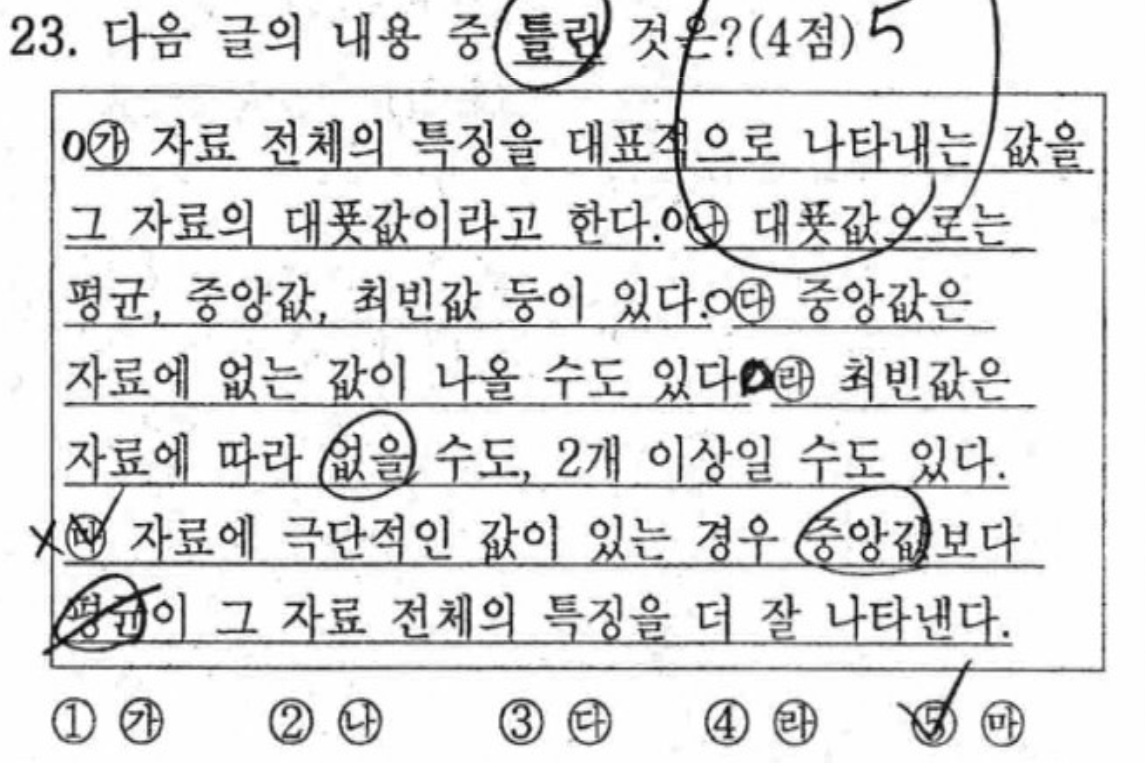 23. 다음 글의 내용 중 틀린 것은?(4점) 5
O㉮ 자료 전체의 특징을 대표적으로 나타내는 값을
그 자료의 대푯값이라고 한다.O㉯ 대푯값으로는
평균, 중앙값, 최빈값 등이 있다.O㉰ 중앙값은
자료에 없는 값이 나올 수도 있다.O㉱ 최빈값은
자료에 따라 없을 수도, 2개 이상일 수도 있다.
X㉲ 자료에 극단적인 값이 있는 경우 중앙값보다
평균이 그 자료 전체의 특징을 더 잘 나타낸다.
① ㉮ ② ㉯ ③ ㉰ ④ ㉱ ⑤ ㉲